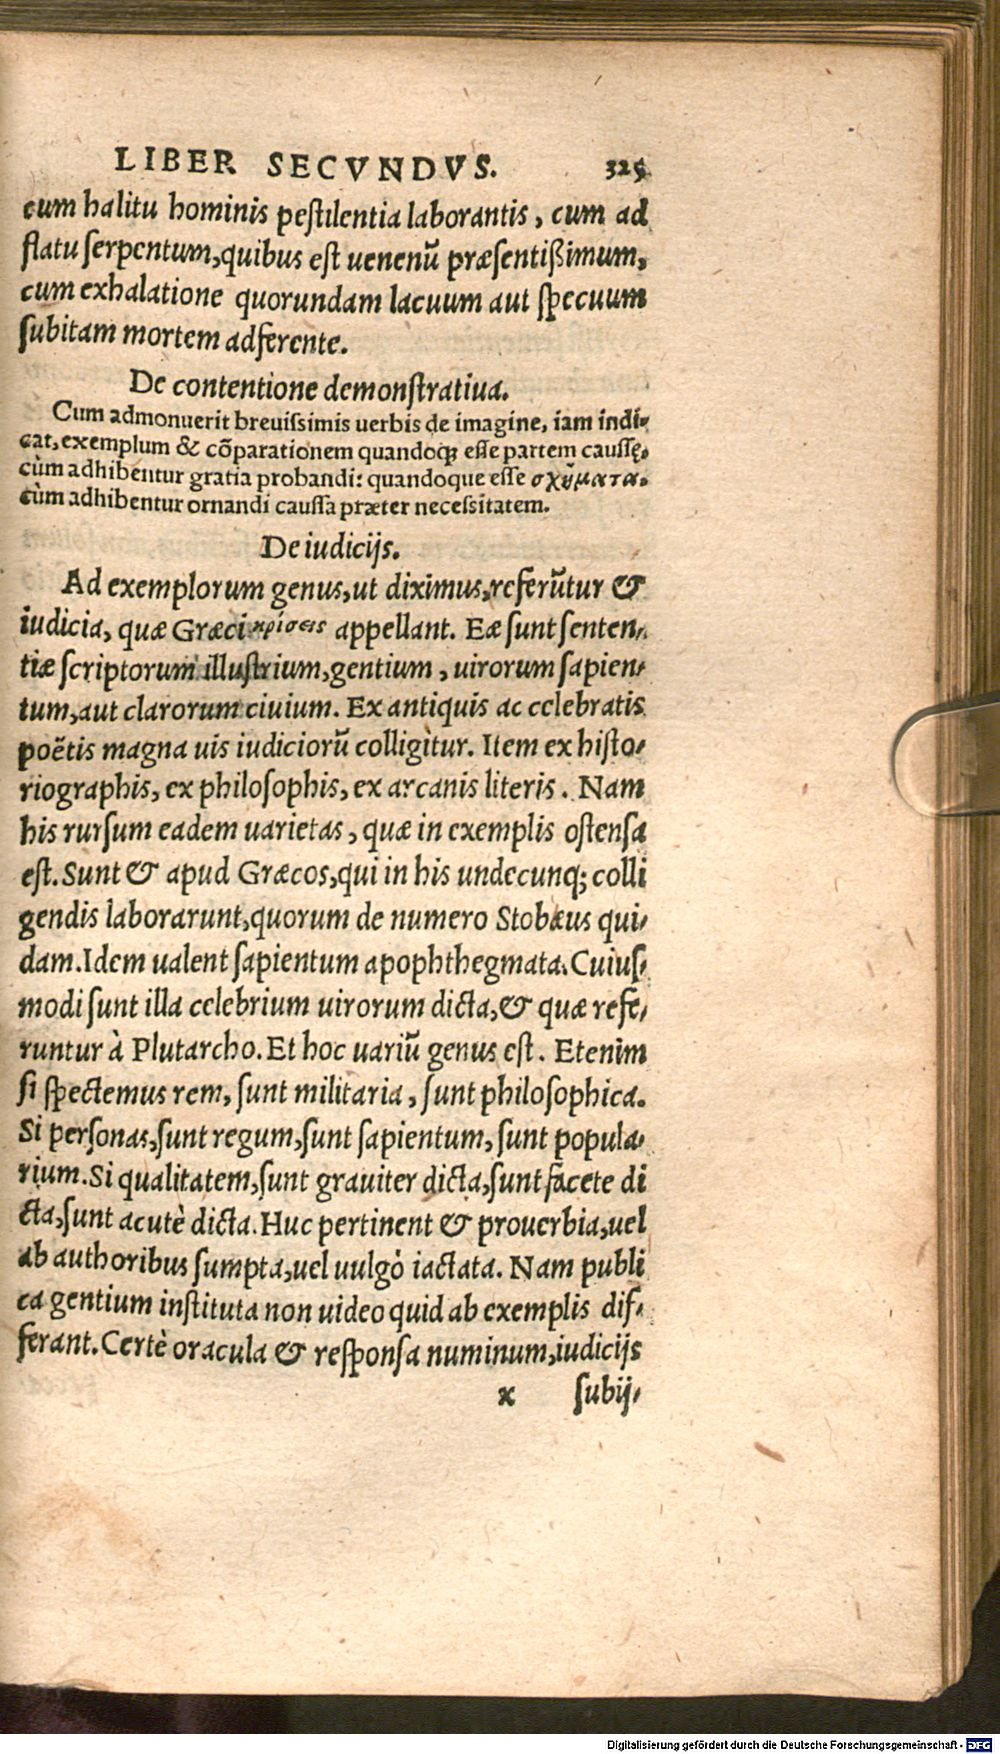 LIBER SECVNDVS. 325
cum halitu hominis pestilentia laborantis, cum ad
flatu serpentum, quibus est uenenū præsentißimum,
cum exhalatione quorundam lacuum aut specuum
subitam mortem adferente.
De contentione demonstratiua.
Cum admonuerit breuissimis uerbis de imagine, iam indi-
cat, exemplum & cōparationem quandoqꝫ esse partem caussę,
cùm adhibentur gratia probandi: quandoque esse σχήματα,
cùm adhibentur ornandi caussa præter necessitatem.
De iudicijs.
Ad exemplorum genus, ut diximus, referūtur &
iudicia, quæ Græci κρίσεις appellant. Eæ sunt senten-
tiæ scriptorum illustrium, gentium, uirorum sapien-
tum, aut clarorum ciuium. Ex antiquis ac celebratis
poëtis magna uis iudiciorū colligitur. Item ex histo-
riographis, ex philosophis, ex arcanis literis. Nam
his rursum eadem uarietas, quæ in exemplis ostensa
est. Sunt & apud Græcos, qui in his undecunq; colli
gendis laborarunt, quorum de numero Stobæus qui-
dam. Idem ualent sapientum apophthegmata. Cuius-
modi sunt illa celebrium uirorum dicta, & quæ refe-
runtur à Plutarcho. Et hoc uariū genus est. Etenim
si spectemus rem, sunt militaria, sunt philosophica.
Si personas, sunt regum, sunt sapientum, sunt popula-
rium. Si qualitatem, sunt grauiter dicta, sunt facete di
cta, sunt acutè dicta. Huc pertinent & prouerbia, uel
ab authoribus sumpta, uel uulgò iactata. Nam publi
ca gentium instituta non uideo quid ab exemplis dif-
ferant. Certè oracula & responsa numinum, iudicijs
x subij-
Digitalisierung gefördert durch die Deutsche Forschungsgemeinschaft - DFG